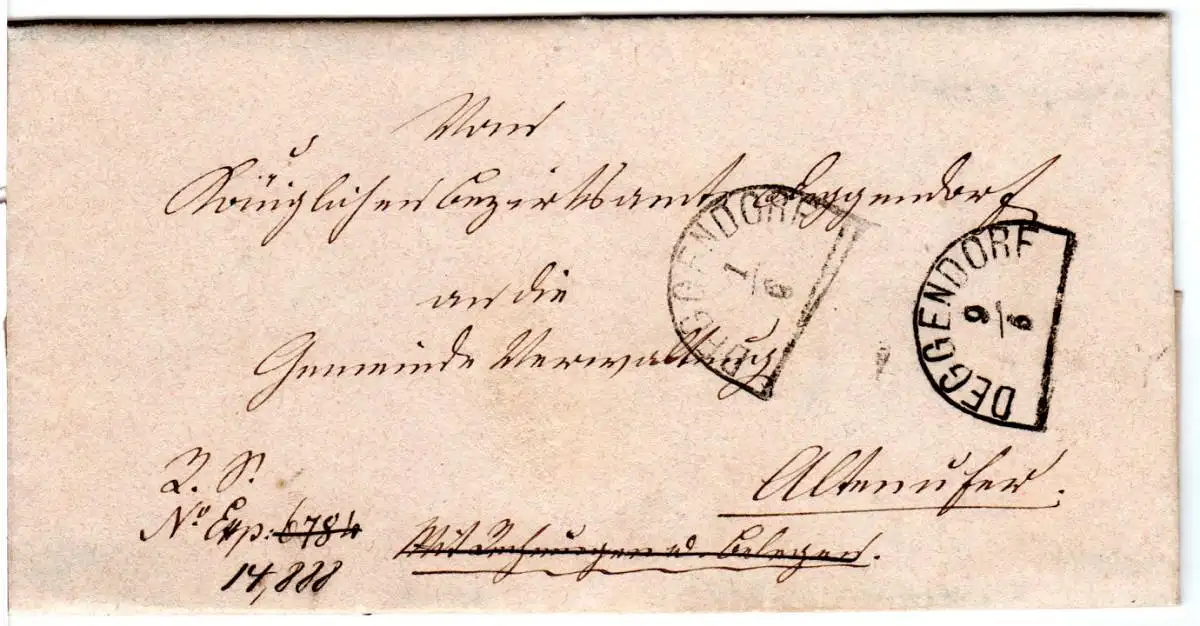 Vom
Königlichen Bezirksamte Deggendorf
an die
Gemeinde Verwaltung
Altenufer.
R. S.
No Exp: 6784
14,888
Mit Rechnungen u. Belegen.
DEGGENDORF
1/6
DEGGENDORF
9/6